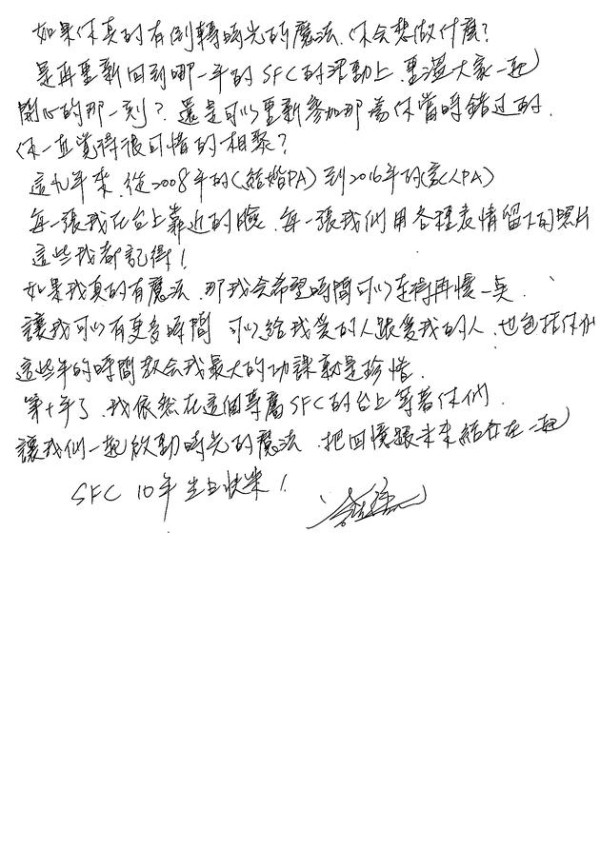 如果你真的有倒轉時光的魔法、你会想做什麼?
是再重新回到哪一年的SFC的活動上、重溫大家一起
開心的那一刻? 還是可以重新參加那為你當時錯过的、
你一直覺得很可惜的相聚?
這九年來、從2008年的(結婚PA)到2016年的(家人PA)
每一張我在台上靠近的臉、每一張我們用各種表情留下的照片
這些我都記得!
如果我真的有魔法、那我会希望時間可以走得再慢一点、
讓我可以有更多時間 可以给我愛的人跟愛我的人、也包括你們
這些年的時間教会我最大的功課就是珍惜、
第十年了、我依然在這個專屬SFC的台上等著你們、
讓我們一起啟動時光的魔法、把回憶跟未來結合在一起
SFC 10年生日快樂!